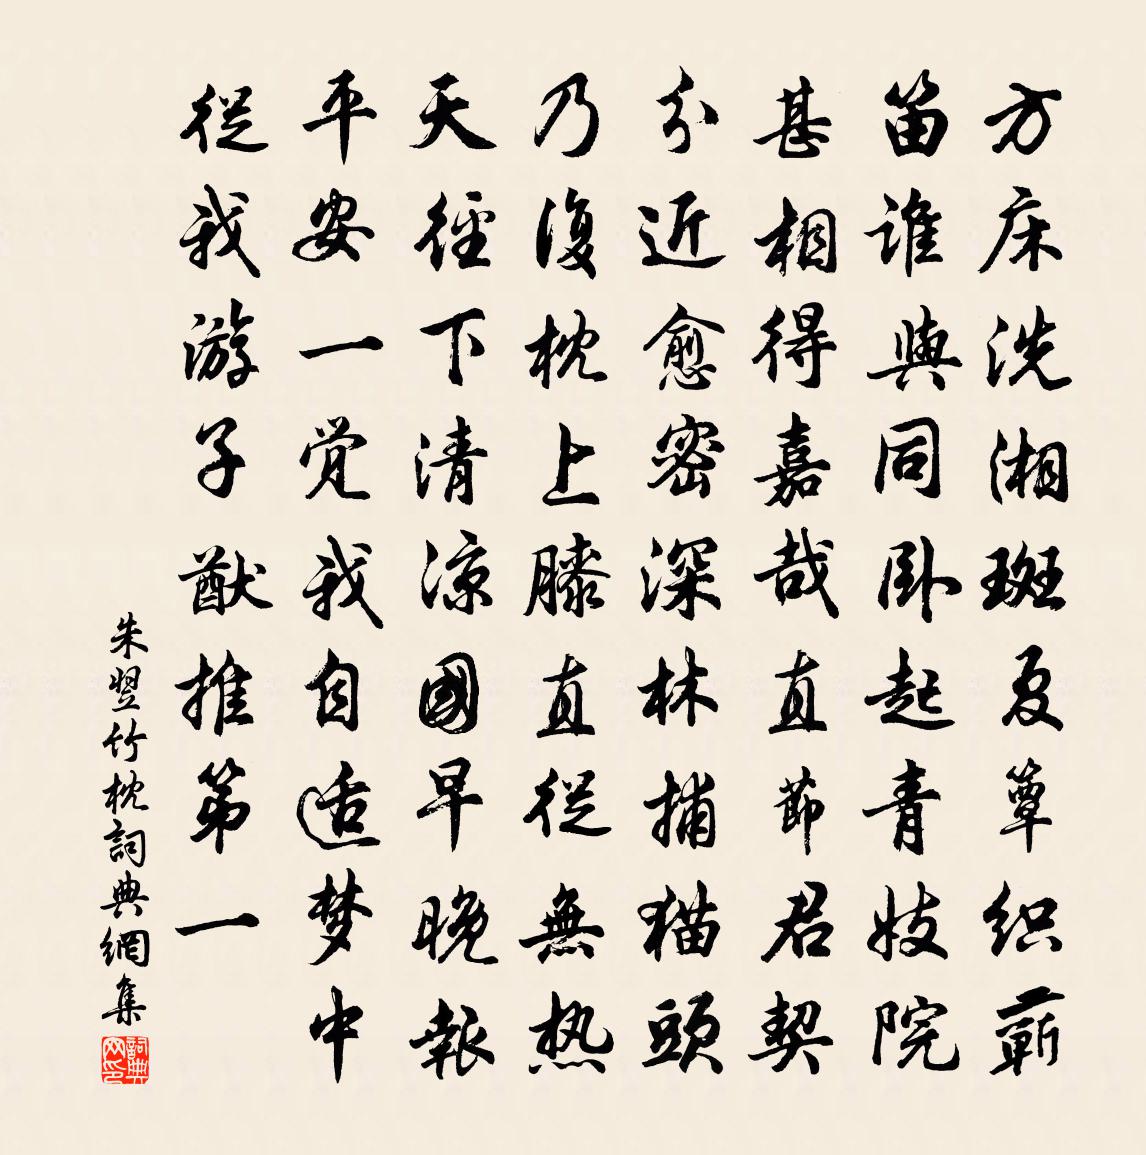 方床洗湘斑夏簟织蕲
笛谁與同卧起青妓院
甚相得嘉哉直節君契
分近愈密深林捕猫頭
乃復枕上膝直從無热
天徑下清凉國早晚報
平安一觉我自适梦中
從我游子猷推第一
朱翌竹枕詞典網集
詞典网印